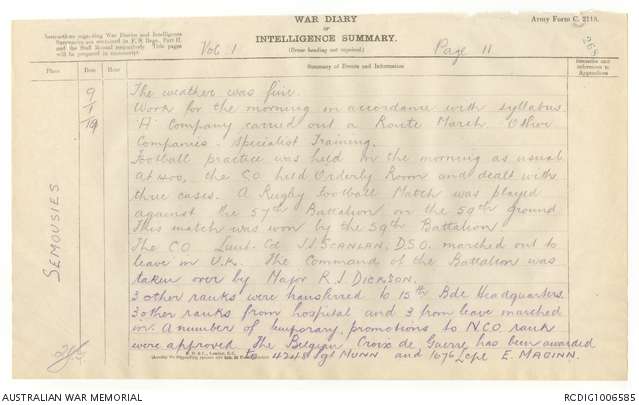 WAR DIARY
OR
INTELLIGENCE SUMMARY.
(Erase heading not required).
Army Form C. 2118.
Instructions regarding War Diaries and Intelligence
Summaries are contained in F.S. Regs., Part II.
and the Staff Manual respectively. Title pages
will be prepared in manuscript.
Vol. 1
Page 11
268
Place
Date
Hour
Summary of Events and Information
Remarks and
references to
Appendices
SEMOUSIES
9/1/19
The weather was fine.
Work for the morning in accordance with syllabus
"A" Company carried out a Route March Other
Companies: Specialist Training.
Football practice was held in the morning as usual
At 1400, the CO held Orderly Room and dealt with
three cases. A Rugby Football Match was played
against the 57th Battalion on the 59th ground
This match was won by the 59th Battalion
The CO Lieut. Col J.J. SCANLAN, D.S.O. marched out to
leave in U.K. The Command of the Battalion was
taken over by Major R. J. DICKSON.
3 other ranks were transferred to 15th Bde Headquarters.
3 other ranks from hospital and 3 from leave marched
in. A number of temporary promotions to N.C.O. rank
were approved. The Belgian Croix de Guerre has been awarded
to 4248 Sgt NUNN and 1676 L/Cpl E. MAGINN.
AUSTRALIAN WAR MEMORIAL
RCDIG1006585